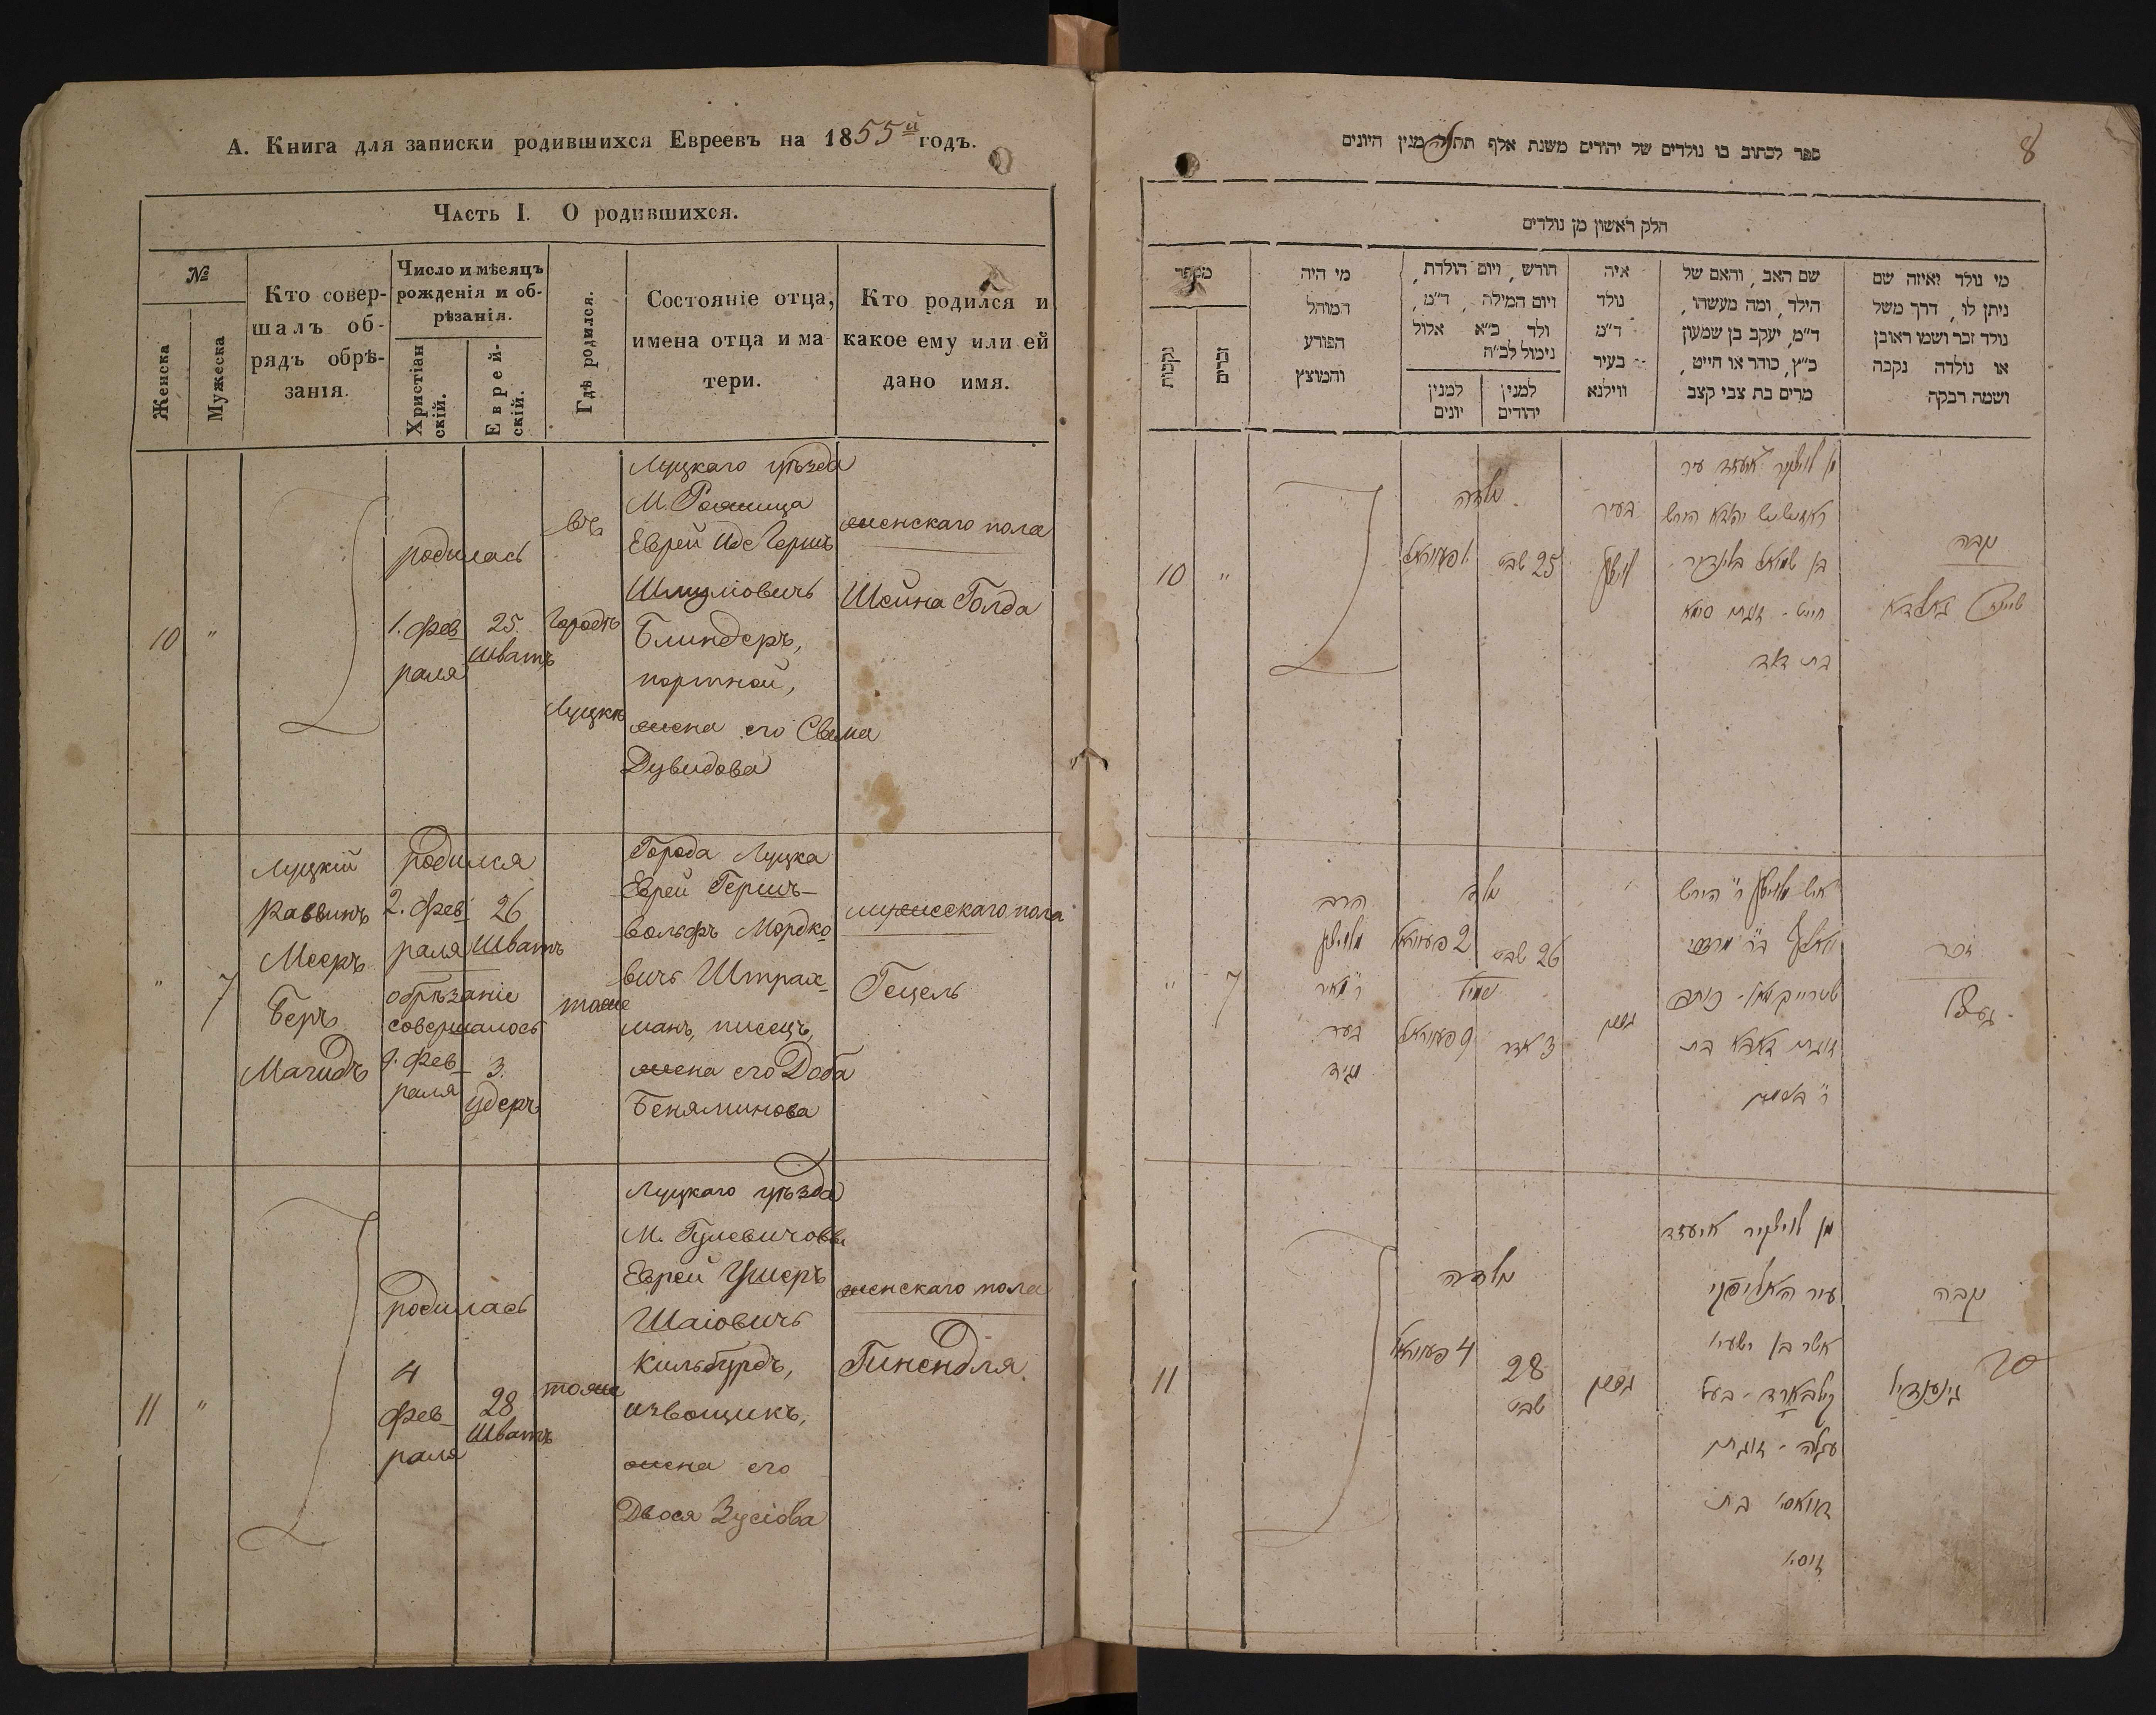 А. Книга для записки родившихся Евреевъ на 1855й годъ.
Часть I. О родившихся.
№
Женска
Мужеска
Кто совер-
шалъ об-
рядъ обрѣ-
занія.
Число и мѣсяцъ
рожденія и об-
рѣзанія.
Христіан
скій.
Еврей-
скій.
Гдѣ родился.
Состояніе отца,
имена отца и ма
тери.
Кто родился и
какое ему или ей
дано имя.
10
"
родилась
1. Фев
раля
25.
Шватъ
въ
Городѣ
Луцкѣ
Луцкаго уѣзда
М. Рожища
Еврей Иде Герш
Шмуліовичъ
Блиндеръ,
портной,
жена его Сима
Дувидова
женскаго пола
Шейна Голда
"
7
Луцкій
Раввинъ
Мееръ
Беръ
Магидъ
родился
2. Фев
раля
26
Шватъ
обрѣзаніе
совершалось
9. Фев
раля
3.
Удеръ
тоже
Города Луцка
Еврей Гершъ-
вольфъ Мордко
вичъ Штрах-
манъ, писецъ,
жена его Доба
Беняминова
мужескаго пола
Гецель
11
"
родилась
4
Фев
раля
28
Шватъ
тоже
Луцкаго уѣзда
М. Гулевичовки
Еврей Ушеръ
Шаіовичъ
Кильбурдъ,
извощикъ,
жена его
Двося Зусіова
женскаго пола
Гинендля
8
ספר לכתוב בו נולדים של יהודים משנת אלף תת מנין היונים
חלק ראשון מן נולדים
מי נולד ואיזה שם
ניתן לו, דרך משל
נולד זכר ושמו ראובן
או נולדה נקבה
ושמה רבקה
שם האב, והאם של
הילד, ומה מעשהו,
ד"מ, יעקב בן שמעון
כ"ץ, סוחר או חייט,
מרים בת צבי קצב
איה
נולד
ד"מ
בעיר
ווילנא
חודש, ויום הולדת,
ויום המילה, ד"מ,
ולד כ"א אלול
נימול לכ"ח
למנין
יהודים
למנין
יונים
מי היה
המוהל
הפורע
והמוצץ
מספר
זכרים
נקבות
10
"
נולדה
1 פעווראל
25 שבט
בעיר
בן שמואל בלינדער
חייט - זוגתו סימא
בת דוד
נקבה
שיינא גאלדא
"
7
הרב
ר' מאיר
בער
מגיד
נולד
2 פעווראל
26 שבט
נימול
9 פעווראל
3 אדר
זוגתו דאבא בת
זכר
געציל
11
נולדה
4 פעווראל
28
שבט
אשר בן ישעיו
קילבארד - בעל
עגלה - זוגתו
דוואסי בת
זוסיו
נקבה
גינענדיל